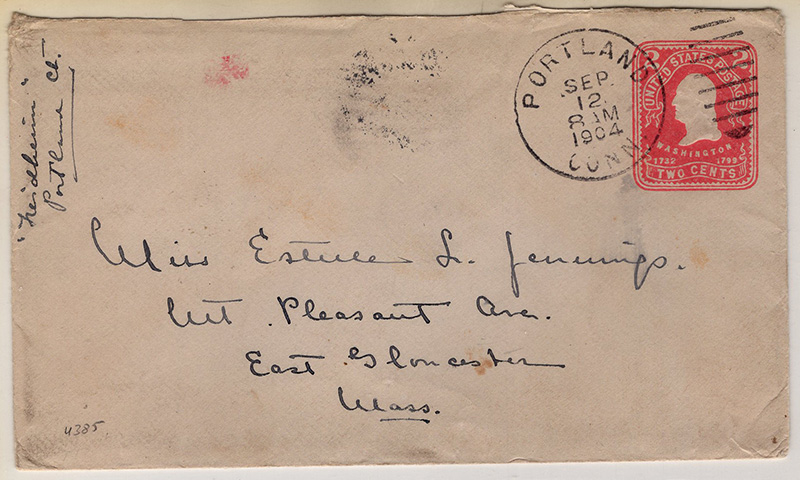 "Neidheim"
Portland Ct.
PORTLAND
SEP.
12
8 AM
1904
CONN.
2 2
UNITED STATES POSTAGE
WASHINGTON
1732 1799
TWO CENTS
Miss Estelle L. Jennings.
Mt. Pleasant Ave.
East Gloucester
Mass.
4385